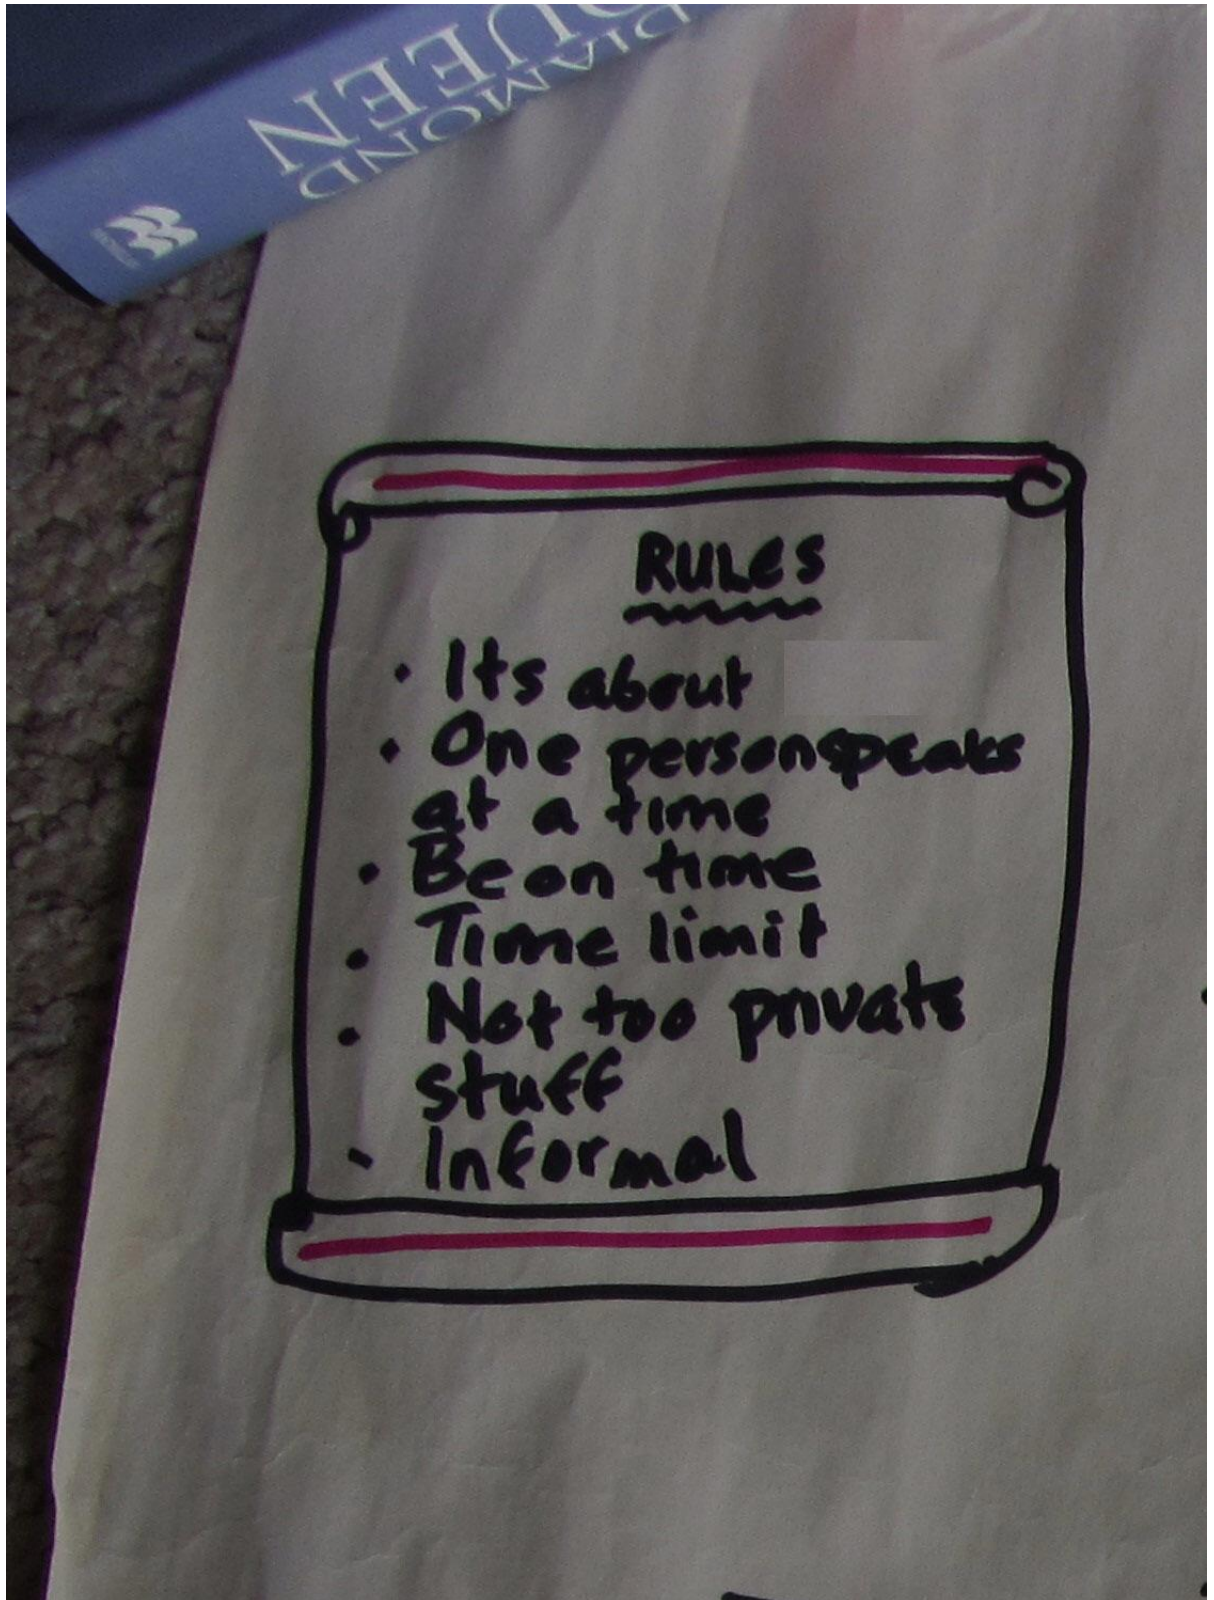 DIAMOND
QUEEN
RULES
• Its about
• One person speaks
at a time
• Be on time
• Time limit
• Not too private
stuff
• Informal